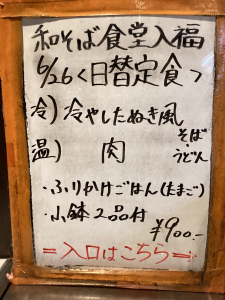 和そば食堂入福
6/26く日替定食っ
冷)冷やしたぬき風
そば
うどん
温) 肉
・ふりかけごはん(たまご)
・小鉢2品付
¥900-
=入口はこちら=